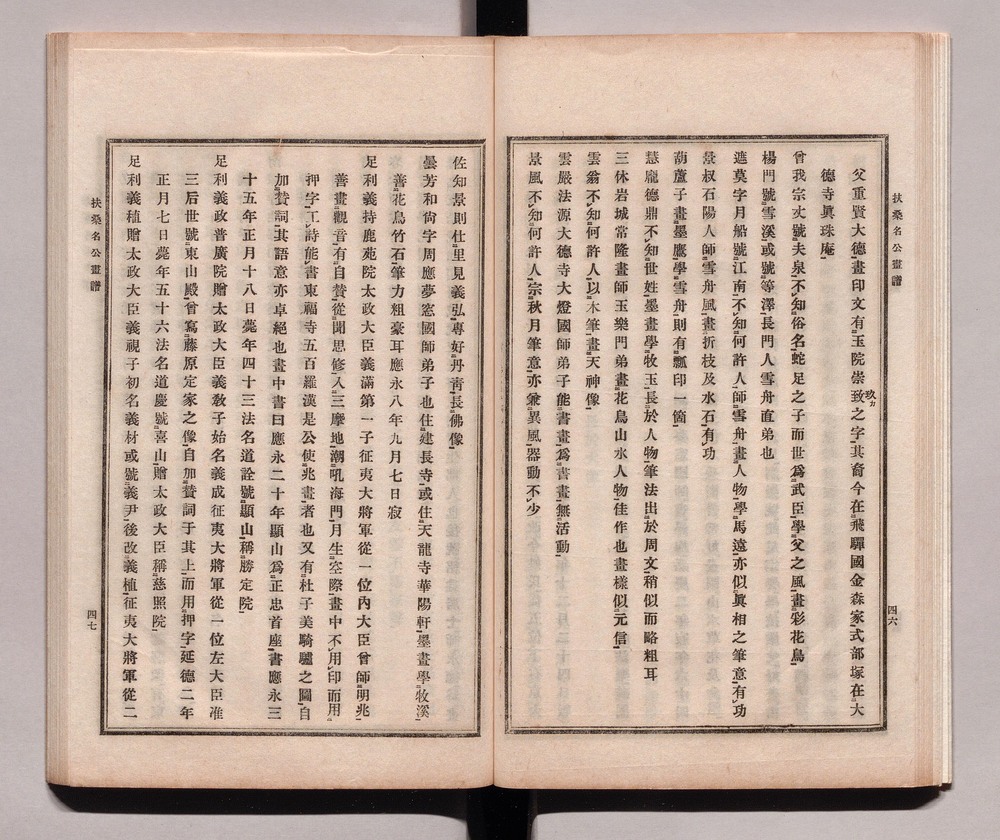 扶桑名公畫譜
四六
父重賢大德畫印文有玉院崇致之字其裔今在飛驒國金森家式部塚在大
玫カ
德寺眞珠庵
曾我宗丈號夫泉不知俗名蛇足之子而世爲武臣學父之風畫彩花鳥
楊門號雪溪或號等澤長門人雪舟直弟也
遮莫字月船號江南不知何許人師雪舟畫人物學馬遠亦似眞相之筆意有功
景叔石陽人師雪舟風畫折枝及水石有功
葫蘆子畫墨鷹學雪舟則有瓢印一箇
慧龐德鼎不知世姓墨畫學牧玉長於人物筆法出於周文稍似而略粗耳
三休岩城常隆畫師玉樂門弟畫花鳥山水人物佳作也畫樣似元信
雲翁不知何許人以木筆畫天神像
雲嚴法源大德寺大燈國師弟子能書畫爲書畫無活動
景風不知何許人宗秋月筆意亦兼異風器動不少
佐知景則仕里見義弘專好丹靑長佛像
曇芳和尙字周應夢窓國師弟子也住建長寺或住天龍寺華陽軒墨畫學牧溪
善花鳥竹石筆力粗豪耳應永八年九月七日寂
足利義持鹿苑院太政大臣義滿第一子征夷大將軍從一位內大臣曾師明兆
善畫觀音有自贊從聞思修入三摩地潮吼海門月生空際畫中不用印而用
押字工詩能書東福寺五百羅漢是公使兆畫者也又有杜子美騎驢之圖自
加贊詞其語意亦卓絕也畫中書曰應永二十年顯山爲正忠首座書應永三
十五年正月十八日薨年四十三法名道詮號顯山稱勝定院
足利義政普廣院贈太政大臣義敎子始名義成征夷大將軍從一位左大臣准
三后世號東山殿曾寫藤原定家之像自加贊詞于其上而用押字延德二年
正月七日薨年五十六法名道慶號喜山贈太政大臣稱慈照院
足利義植贈太政大臣義視子初名義材或號義尹後改義植征夷大將軍從二
扶桑名公畫譜
四七